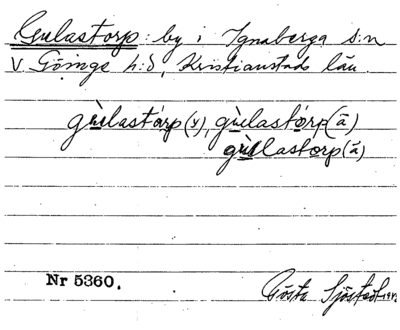 Gulastorp: by i Ignaberga s:n
V. Göinge h:d, Kristianstads län.
gùlastórp (y), gùelastórp (ā)
gùllastorp (ā)
Nr 5360.
Gösta Sjöstedt